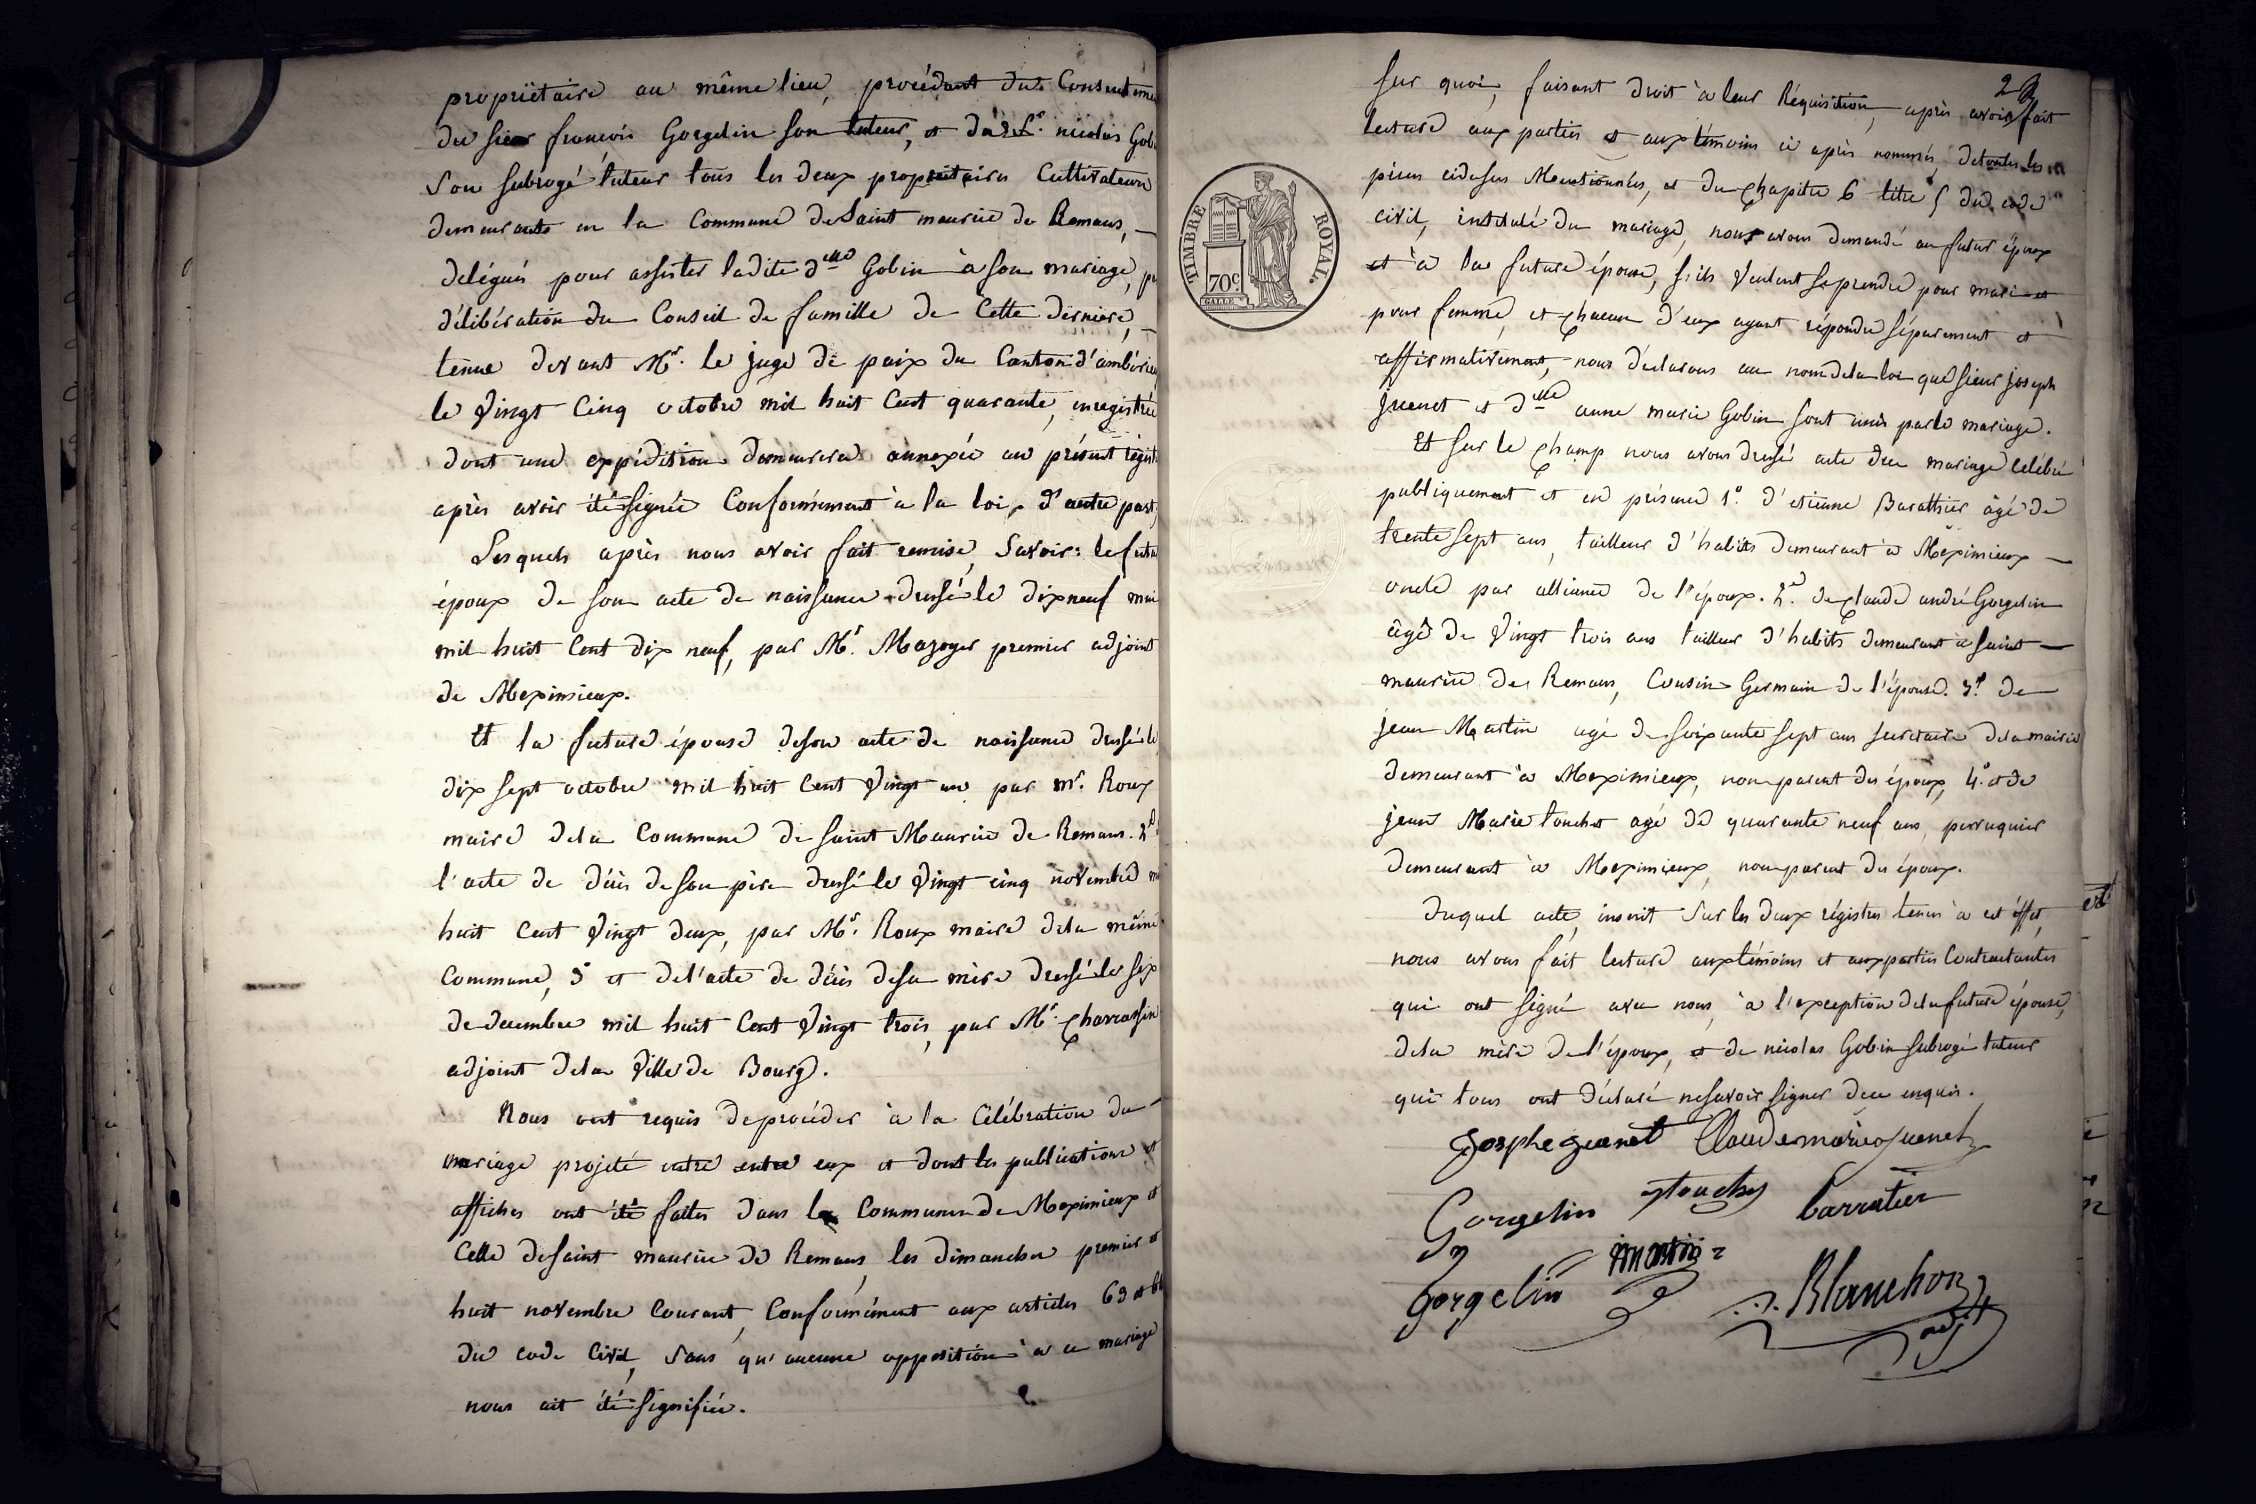 propriétaire au même lieu, procédant du Consenteme
du sieur françois Gorgelin son tuteur, et du sr. nicolas Gob
Son subrogé tuteur tous les deux propriétaires Cultivateurs
demeurants en la Commune de Saint maurice de Remens, —
delégués pour assister ladite dlle Gobin à son mariage, p
délibération du Conseil de famille de Cette dernière, —
tenue devant Mr. le juge de paix du Canton d'ambérieu
le Vingt Cinq octobre mil huit Cent quarante, enregistrée
dont une expédition demeurera annexée au présent régist
après avoir été signée Conformément à la loi, d'autre part,
Lesquels après nous avoir fait remise, Savoir: le futu
époux de son acte de naissance dressé le dix neuf mai
mil huit Cent dix neuf, par Mr. Mazoyer premier adjoint
de Meximieux.
Et la future épouse de son acte de naissance dressé le
dix sept octobre mil huit Cent Vingt un par mr. Roux
maire de la Commune de Saint Maurice de Remens. 2°
l'acte de décès de son père dressé le Vingt cinq novembre m
huit Cent Vingt deux, par Mr. Roux maire de la même
Commune, 3° et de l'acte de décès de sa mère dressé le six
de decembre mil huit Cent Vingt trois, par Mr. Charrassin
adjoint de la Ville de Bourg.
Nous ont requis de procéder à la Célébration du —
mariage projeté entre entre eux et dont les publications et
affiches ont été faites dans la Commune de Meximieux et
Celle de Saint maurice de Remens, les dimanches premier et
huit novembre Courant, Conformément aux articles 63 et 6
du code Civil, Sans qu'aucune opposition à ce mariage
nous ait été signifiée.
23
Sur quoi, faisant droit à leur Réquisition, après avoir fait
lecture aux parties et aux témoins ci après nommés, de toutes les
pièces cidesus Mentionnées, et du Chapitre 6 titre 5 du code
civil, intitulé du mariage, nous avons demandé au futur époux
et à la future épouse, s'ils Veulent se prendre pour mari et
pour femme, et chacun d'eux ayant répondu séparément et
affirmativement, nous déclarons au nom de la loi que sieur joseph
juenet et dlle anne marie Gobin sont unis par le mariage.
Et sur le Champ nous avons dressé acte du mariage célébré
publiquement et en présence 1°. d'etienne Baratthier âgé de
trente sept ans, tailleur d'habits demeurant à Meximieux —
oncle par alliance de l'époux. 2°. de Claude andré Gorgelin
âgé de Vingt trois ans tailleur d'habits demeurant à Saint —
maurice de Remens, Cousin Germain de l'épouse. 3°. de —
jean Martin agé de soixante sept ans secretaire de la mairie
demeurant à Meximieux, non parent des époux, 4°. et de
jean Marie touchet agé de quarante neuf ans, perruquier
demeurant à Meximieux, non parent des époux.
Duquel acte, inscrit Sur les deux régistres tenus à cet éffet,
nous avons fait lecture aux témoins et aux parties Contractantes
qui ont signé avec nous, à l'exception de la future épouse,
de la mère de l'époux, et de nicolas Gobin subrogé tuteur
qui tous ont déclaré ne savoir signer de ce enquis.
Josphe juenet Claude marie Juenet
Gorgelin touchet barratier
Gorgelin martin J. Blanchon
adjt
TIMBRE ROYAL.
70c